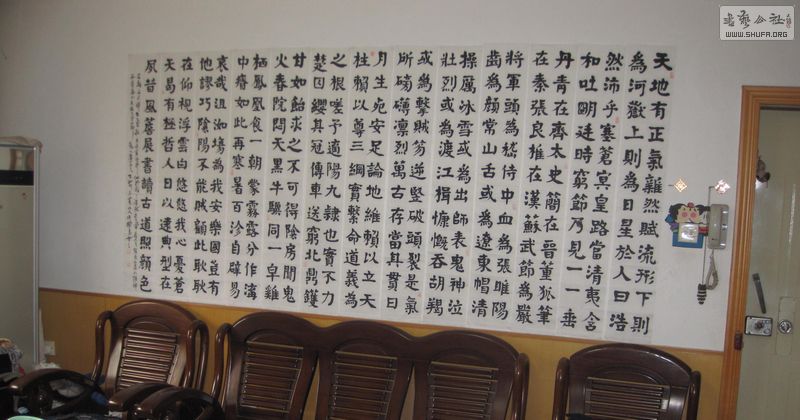 天地有正氣雜然賦流形下則
為河嶽上則為日星於人曰浩
然沛乎塞蒼冥皇路當清夷含
和吐明廷時窮節乃見一一垂
丹青在齊太史簡在晉董狐筆
在秦張良椎在漢蘇武節為嚴
將軍頭為嵇侍中血為張睢陽
齒為顏常山舌或為遼東帽清
操厲冰雪或為出師表鬼神泣
壯烈或為渡江楫慷慨吞胡羯
或為擊賊笏逆竪破頭裂是氣
所磅礴凜烈萬古存當其貫日
月生死安足論地維賴以立天
柱賴以尊三綱實繫命道義為
之根嗟予遘陽九隸也實不力
楚囚纓其冠傳車送窮北鼎鑊
甘如飴求之不可得陰房闃鬼
火春院閟天黑牛驥同一皁雞
栖鳳凰食一朝蒙霧露分作溝
中瘠如此再寒暑百沴自辟易
哀哉沮洳場為我安樂國豈有
他謬巧陰陽不能賊顧此耿耿
在仰視浮雲白悠悠我心憂蒼
天曷有極哲人日以遠典型在
夙昔風簷展書讀古道照顏色
書藝公社
WWW.SHUFA.ORG